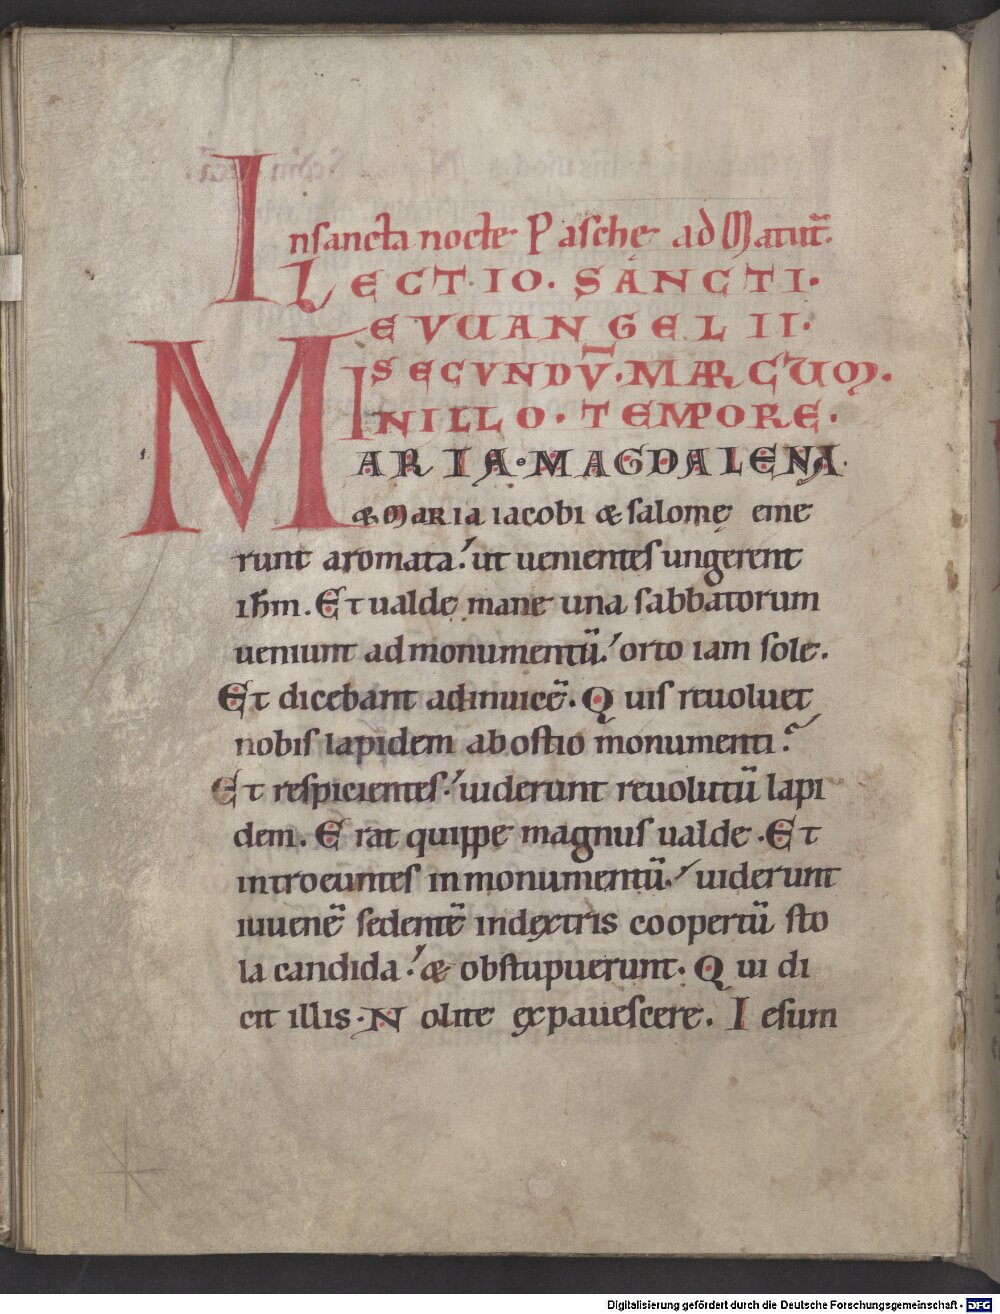 In sancta nocte Pasche ad Matut̄.
LECTIO. SANCTI.
EVUANGELII.
SECVNDV̄. MARCUM.
IN ILLO. TEMPORE.
MARIA. MAGDALENA.
& MARIA iacobi & salomę eme
runt aromata. ut uenientes ungerent
ih̄m. Et ualde mane una sabbatorum
ueniunt ad monumentū. orto iam sole.
Et dicebant adinuicē. Quis reuoluet
nobis lapidem ab ostio monumenti?
Et respicientes. uiderunt reuolutū lapi
dem. Erat quippe magnus ualde. Et
introeuntes in monumentū. uiderunt
iuuenē sedentē in dextris coopertū sto
la candida. & obstupuerunt. Qui di
cit illis. Nolite expauescere. Iesum
Digitalisierung gefördert durch die Deutsche Forschungsgemeinschaft - DFG